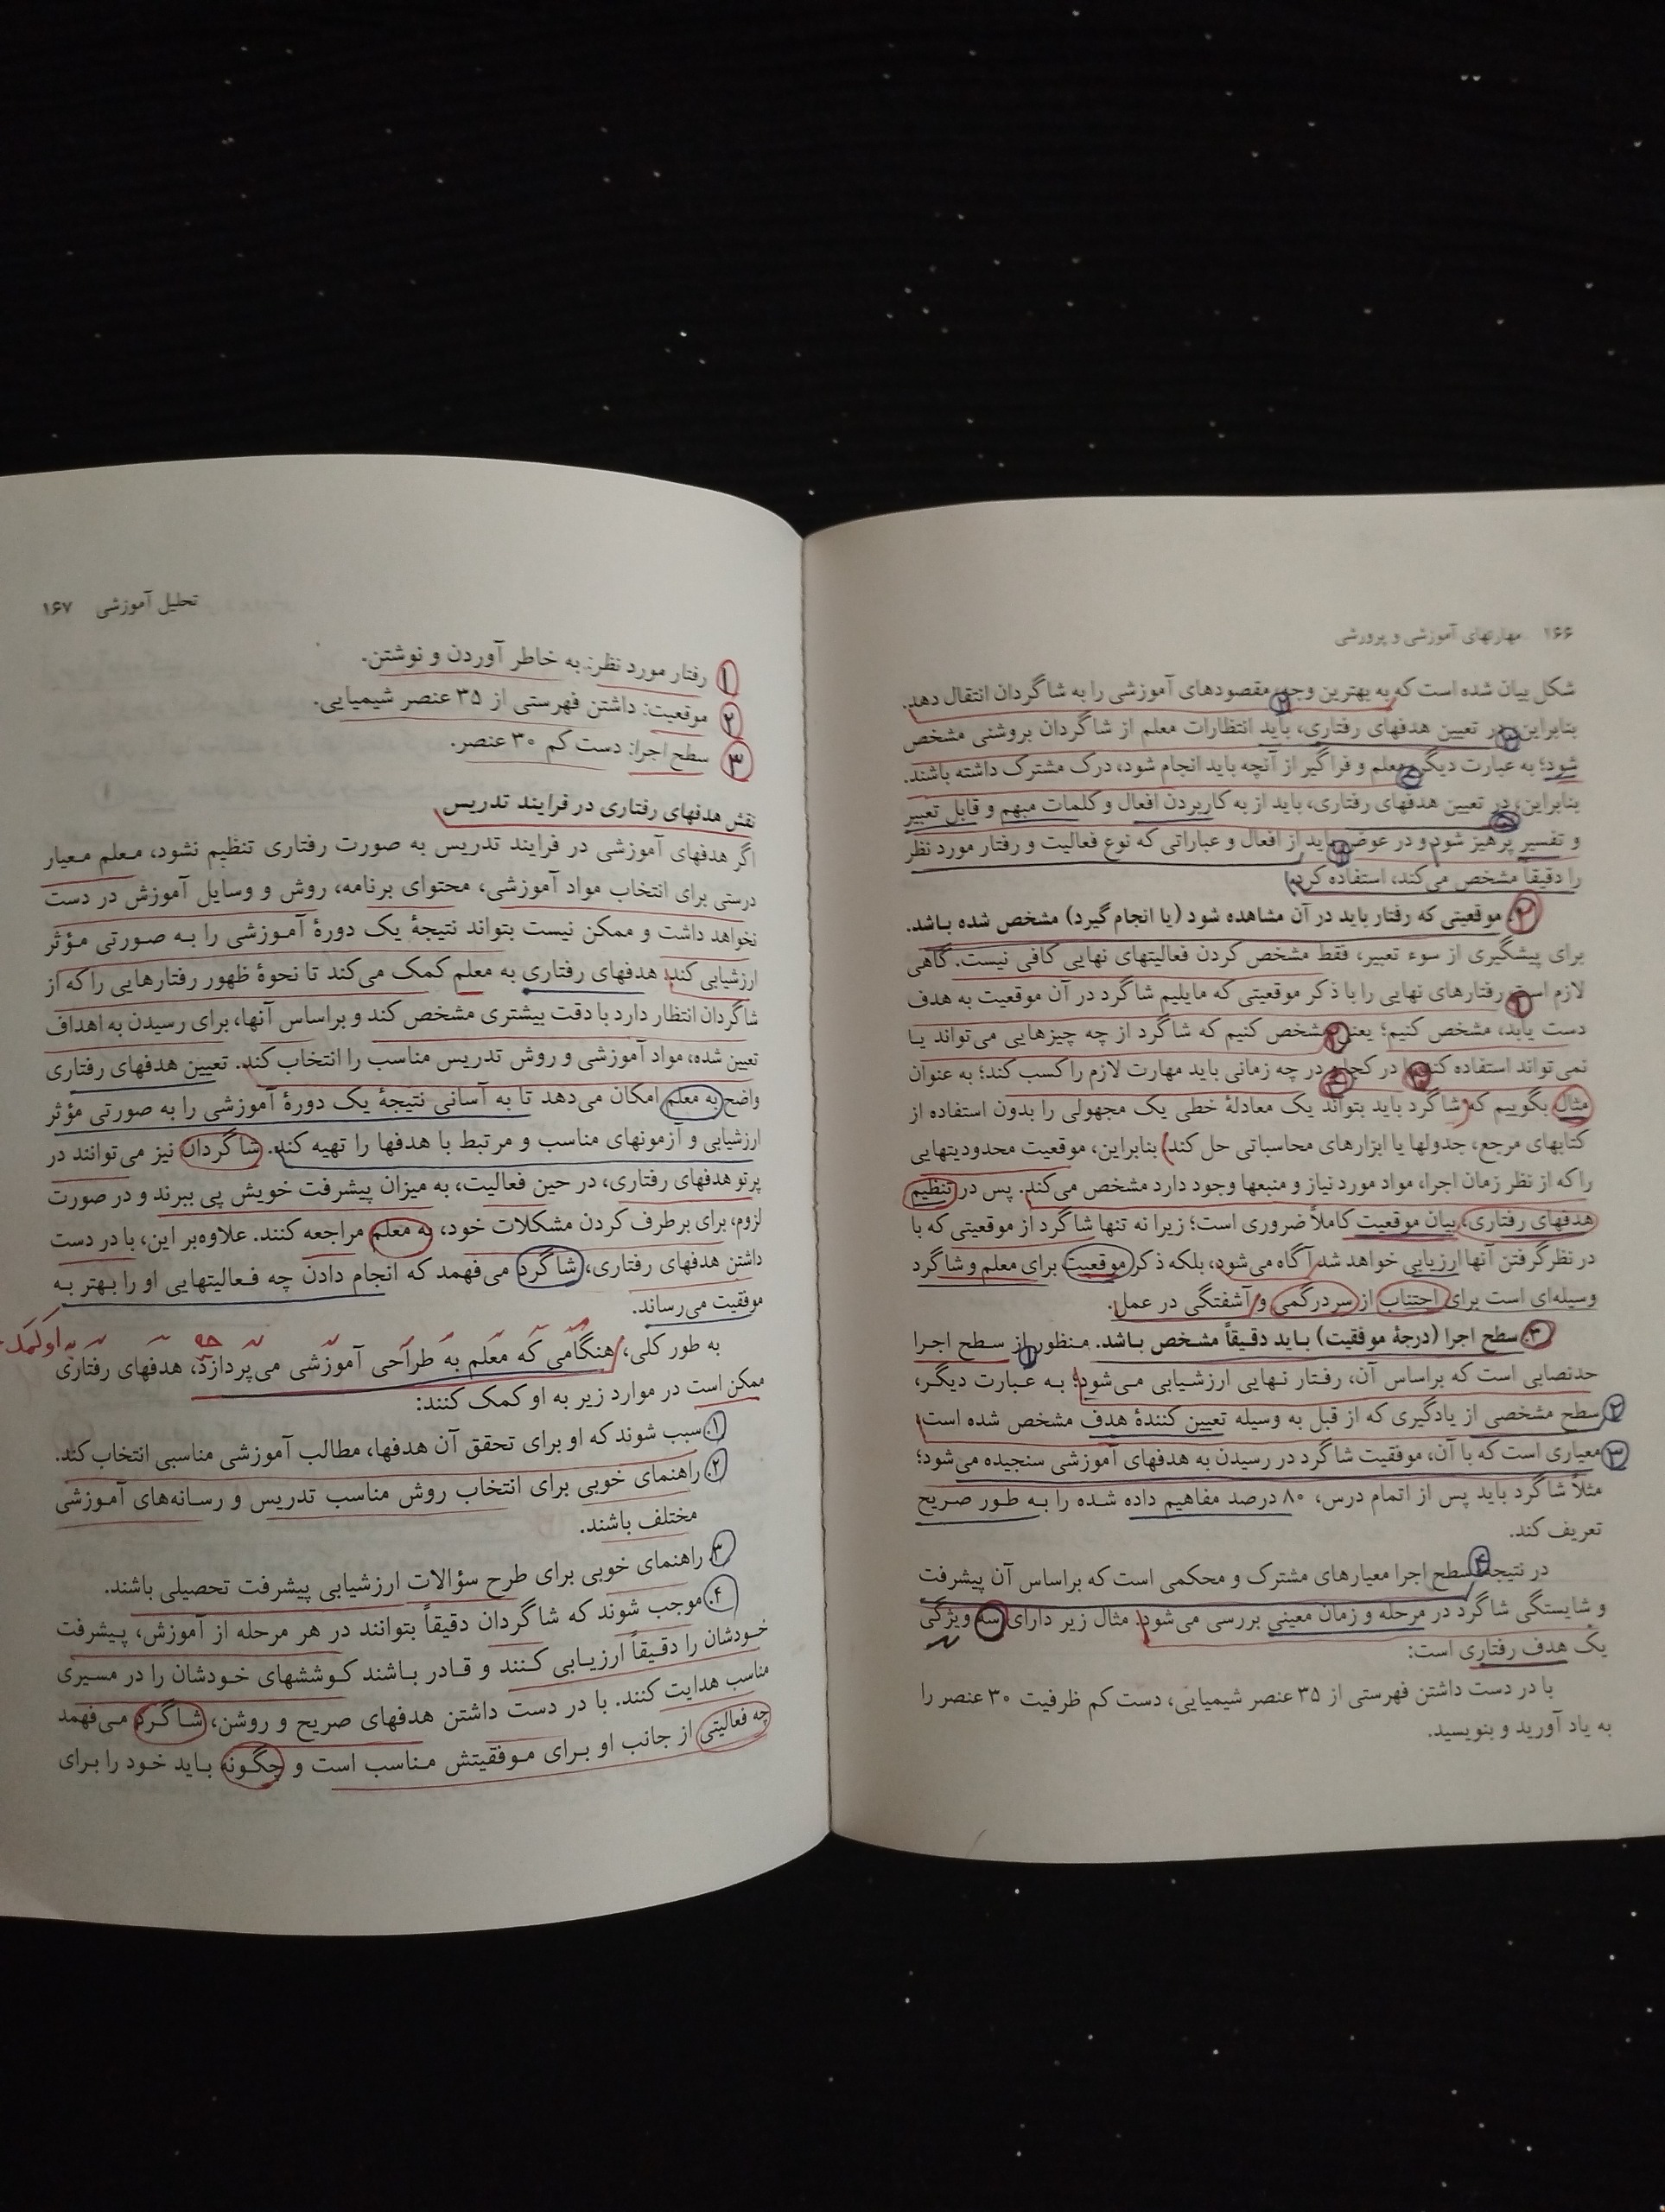 ۱۶۶ مهارتهای آموزشی و پرورشی
شکل بیان شده است که به بهترین وجه مقصودهای آموزشی را به شاگردان انتقال دهد.
بنابراین، در تعیین هدفهای رفتاری، باید انتظارات معلم از شاگردان بروشنی مشخص
شود؛ به عبارت دیگر، معلم و فراگیر از آنچه باید انجام شود، درک مشترک داشته باشند.
بنابراین، در تعیین هدفهای رفتاری، باید از به کاربردن افعال و کلمات مبهم و قابل تعبیر
و تفسیر پرهیز شود و در عوض باید از افعال و عباراتی که نوع فعالیت و رفتار مورد نظر
را دقیقاً مشخص می‌کند، استفاده کرد.
۲. موقعیتی که رفتار باید در آن مشاهده شود (یا انجام گیرد) مشخص شده باشد.
برای پیشگیری از سوء تعبیر، فقط مشخص کردن فعالیتهای نهایی کافی نیست. گاهی
لازم است رفتارهای نهایی را با ذکر موقعیتی که مایلیم شاگرد در آن موقعیت به هدف
دست یابد، مشخص کنیم؛ یعنی مشخص کنیم که شاگرد از چه چیزهایی می‌تواند یا
نمی‌تواند استفاده کند یا در کجا و در چه زمانی باید مهارت لازم را کسب کند؛ به عنوان
مثال بگوییم که شاگرد باید بتواند یک معادلهٔ خطی یک مجهولی را بدون استفاده از
کتابهای مرجع، جدولها یا ابزارهای محاسباتی حل کند. بنابراین، موقعیت محدودیتهایی
را که از نظر زمان اجرا، مواد مورد نیاز و منبعها وجود دارد مشخص می‌کند. پس در تنظیم
هدفهای رفتاری، بیان موقعیت کاملاً ضروری است؛ زیرا نه تنها شاگرد از موقعیتی که با
در نظر گرفتن آنها ارزیابی خواهد شد آگاه می‌شود، بلکه ذکر موقعیت برای معلم و شاگرد
وسیله‌ای است برای اجتناب از سردرگمی و آشفتگی در عمل.
۳. سطح اجرا (درجهٔ موفقیت) باید دقیقاً مشخص باشد. منظور از سطح اجرا
حدنصابی است که براساس آن، رفتار نهایی ارزشیابی می‌شود؛ به عبارت دیگر،
۲ سطح مشخصی از یادگیری که از قبل به وسیله تعیین کنندهٔ هدف مشخص شده است؛
۳ معیاری است که با آن، موفقیت شاگرد در رسیدن به هدفهای آموزشی سنجیده می‌شود؛
مثلاً شاگرد باید پس از اتمام درس، ۸۰ درصد مفاهیم داده شده را به طور صریح
تعریف کند.
در نتیجه سطح اجرا معیارهای مشترک و محکمی است که براساس آن پیشرفت
و شایستگی شاگرد در مرحله و زمان معینی بررسی می‌شود. مثال زیر دارای سه ویژگی
یک هدف رفتاری است:
با در دست داشتن فهرستی از ۳۵ عنصر شیمیایی، دست کم ظرفیت ۳۰ عنصر را
به یاد آورید و بنویسید.
تحلیل آموزشی ۱۶۷
۱ رفتار مورد نظر: به خاطر آوردن و نوشتن.
۲ موقعیت: داشتن فهرستی از ۳۵ عنصر شیمیایی.
۳ سطح اجرا: دست کم ۳۰ عنصر.
نقش هدفهای رفتاری در فرایند تدریس
اگر هدفهای آموزشی در فرایند تدریس به صورت رفتاری تنظیم نشود، معلم معیار
درستی برای انتخاب مواد آموزشی، محتوای برنامه، روش و وسایل آموزش در دست
نخواهد داشت و ممکن نیست بتواند نتیجهٔ یک دورهٔ آموزشی را به صورتی مؤثر
ارزشیابی کند؛ هدفهای رفتاری به معلم کمک می‌کند تا نحوهٔ ظهور رفتارهایی را که از
شاگردان انتظار دارد با دقت بیشتری مشخص کند و براساس آنها، برای رسیدن به اهداف
تعیین شده، مواد آموزشی و روش تدریس مناسب را انتخاب کند. تعیین هدفهای رفتاری
واضح به معلم امکان می‌دهد تا به آسانی نتیجهٔ یک دورهٔ آموزشی را به صورتی مؤثر
ارزشیابی و آزمونهای مناسب و مرتبط با هدفها را تهیه کند. شاگردان نیز می‌توانند در
پرتو هدفهای رفتاری، در حین فعالیت، به میزان پیشرفت خویش پی ببرند و در صورت
لزوم، برای برطرف کردن مشکلات خود، به معلم مراجعه کنند. علاوه‌بر این، با در دست
داشتن هدفهای رفتاری، شاگرد می‌فهمد که انجام دادن چه فعالیتهایی او را بهتر به
موفقیت می‌رساند.
به طور کلی، هنگامی که معلم به طراحی آموزشی می‌پردازد، هدفهای رفتاری
ممکن است در موارد زیر به او کمک کنند:
۱. سبب شوند که او برای تحقق آن هدفها، مطالب آموزشی مناسبی انتخاب کند.
۲. راهنمای خوبی برای انتخاب روش مناسب تدریس و رسانه‌های آموزشی
مختلف باشند.
۳. راهنمای خوبی برای طرح سؤالات ارزشیابی پیشرفت تحصیلی باشند.
۴. موجب شوند که شاگردان دقیقاً بتوانند در هر مرحله از آموزش، پیشرفت
خودشان را دقیقاً ارزیابی کنند و قادر باشند کوششهای خودشان را در مسیری
مناسب هدایت کنند. با در دست داشتن هدفهای صریح و روشن، شاگرد می‌فهمد
چه فعالیتی از جانب او برای موفقیتش مناسب است و چگونه باید خود را برای